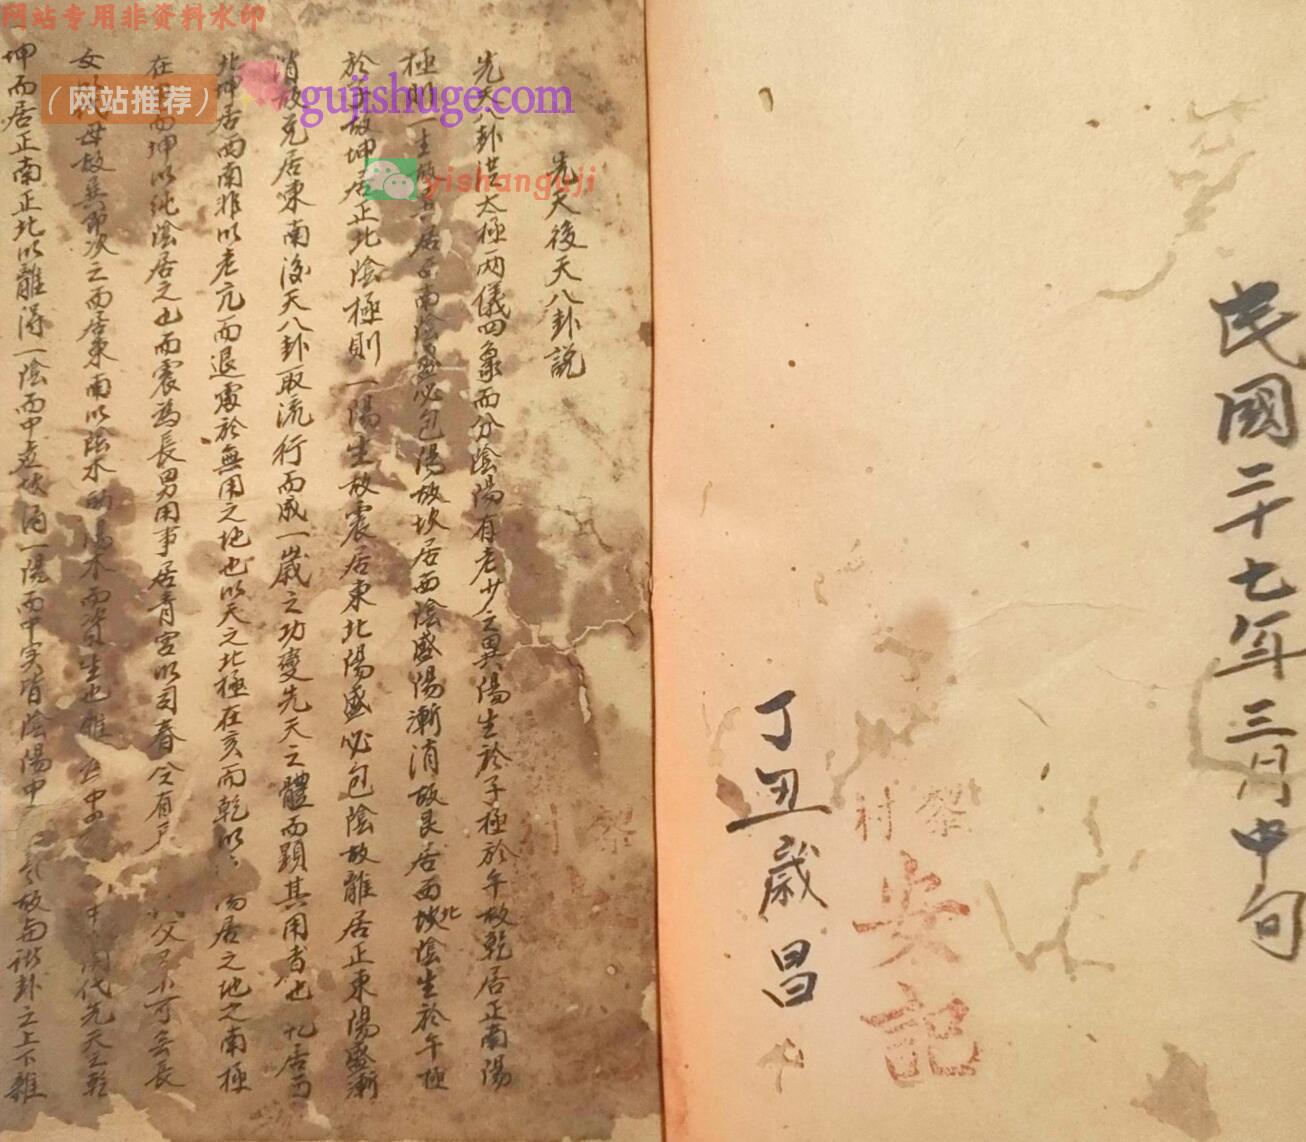 网站专用非资料水印
（网站推荐）
gujishuge.com
yishanguji
民國二十七年三月中旬
丁丑歲昌
黎
村
安記
先天後天八卦説
先天八卦洪太極兩儀四象而分陰陽有老少之異陽生於子極於午故乾居正南陽
極則一生故居南陰盛必包陽故坎居西陰盛陽漸消故艮居西北坎陰生於午極
於子故坤居正北陰極則一陽生故震居東北陽盛必包陰故離居正東陽盛漸
消故兑居東南後天八卦取流行而成一歲之功變先天之體而顕其用者也 居西
北坤居西南非以老亢而退處於無用之地也以天之北極在亥而乾以居之地之南極
在而坤以純陰居之也而震為長男用事居青宫以司春令有父不可無長
女以代母故巽即次之而居東南以陰木助陽木而生也離中代先天之乾
坤而居正南正北以離得一陰而中虚坎得一陽而中实皆陰陽中故与諸卦之上下雜